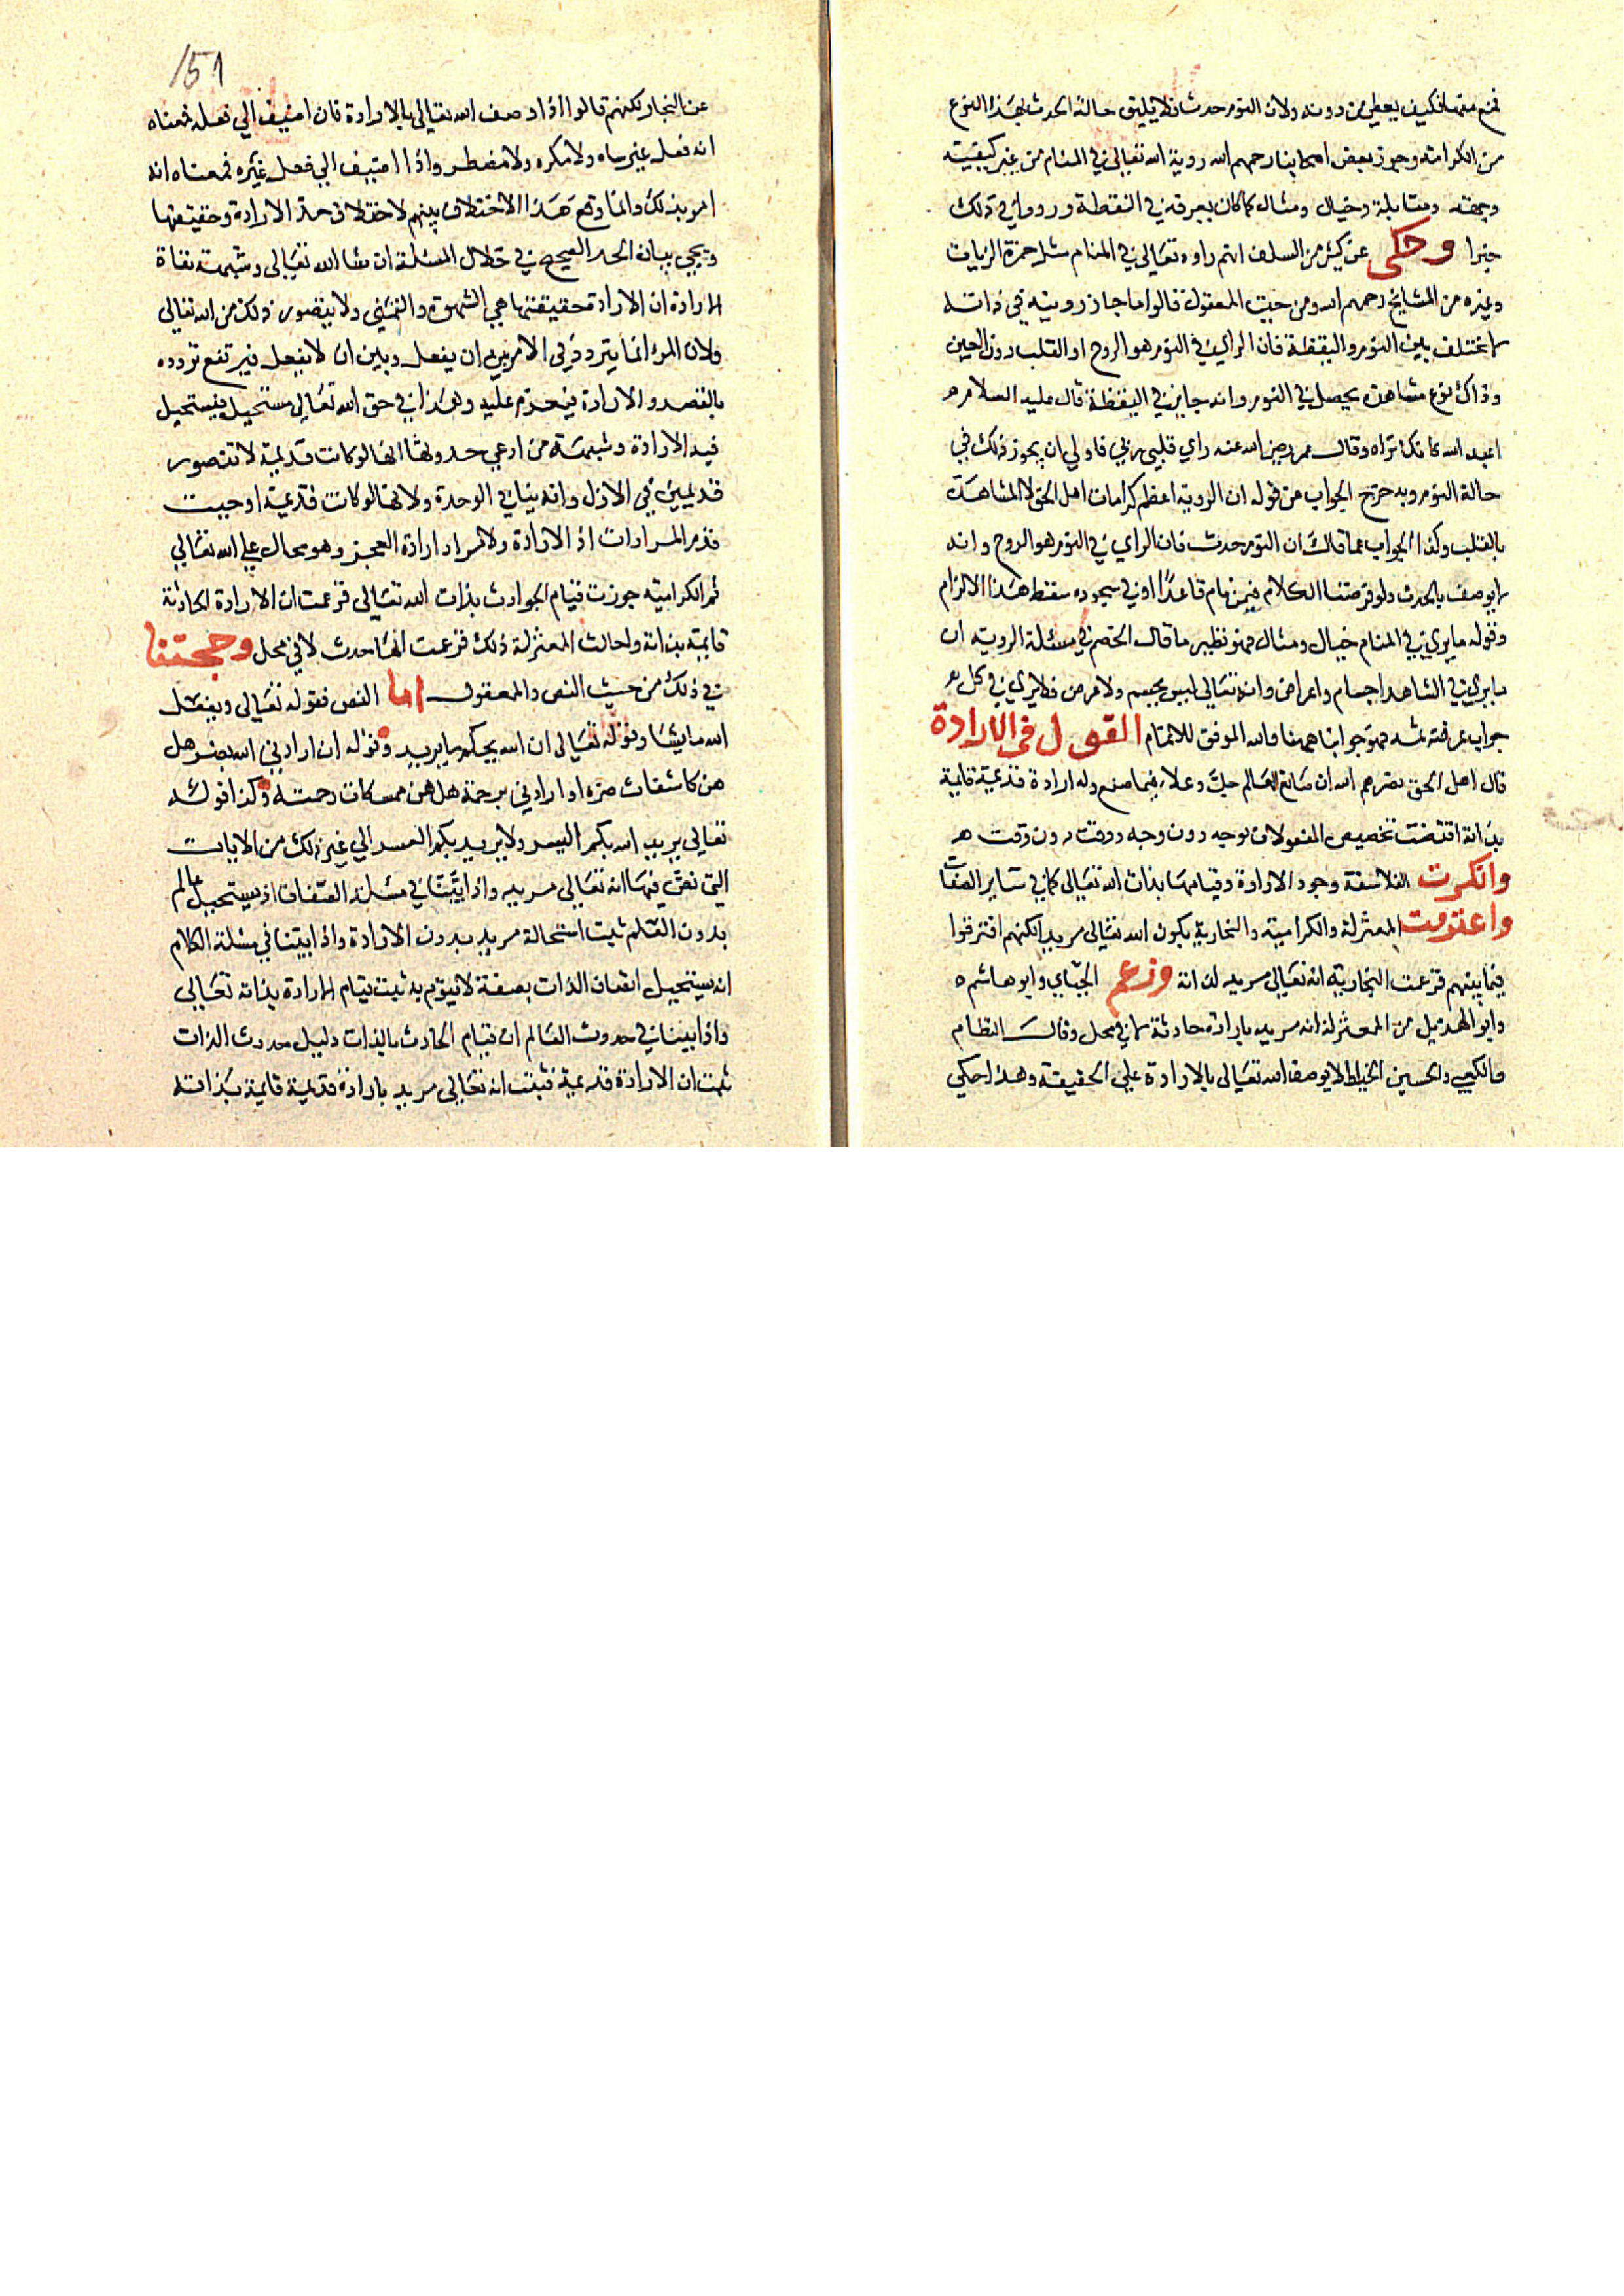 منها فكيف يعطي من دونه ولان النوم حدث فلا يليق حالة الحدث بهذا النوع
من الكرامة وجوز بعض اصحابنا رحمهم الله روية الله تعالى في المنام من غير كيفية
وجهة ومقابلة وخيال ومثال كما كان يعرفه في اليقظة ورووا في ذلك
خبرا وحكى عن كثير من السلف انهم راوه تعالى في المنام مثل حمزة الزيات
وغيره من المشايخ رحمهم الله ومن حيث المعقول قالوا ما جاز رويته في ذاته
لا يختلف بين النوم واليقظة فان الراي في النوم هو الروح او القلب دون العين
وذاك نوع مشاهدة يحصل في النوم وانه جايز في اليقظة قال عليه السلام
اعبد الله كانك تراه وقال عمر رضي الله عنه راي قلبي ربي فاولي ان يجوز ذلك في
حالة النوم وبه خرج الجواب عن قوله ان الروية اعظم كرامات اهل الحق لا المشاهدة
بالقلب وكذا الجواب عما قال ان النوم حدث فان الراي في النوم هو الروح وانه
لا يوصف بالحدث ولو فرضنا الكلام فيمن نام قاعدا او في سجوده سقط هذا الالزام
وقوله ما يري في المنام خيال ومثال فهو نظير ما قال الخصم في مسئلة الروية ان
ما يري في الشاهد اجسام واعراض وانه تعالى ليس بجسم ولا عرض فلا يري فكل
جواب عرفته ثمه فهو جوابنا ههنا والله الموفق للاتمام القول في الارادة
قال اهل الحق نصرهم الله ان صانع العالم جل وعلا فيما صنع وله ارادة قديمة قايمة
بذاته اقتضت تخصيص المفعولات بوجه دون وجه ووقت دون وقت
وانكرت الفلاسفة وجود الارادة وقيامها بذات الله تعالى كما في ساير الصفات
واعترفت المعتزلة والكرامية والنجارية بكون الله تعالى مريدا لكنهم افترقوا
فيما بينهم فزعمت النجارية انه تعالى مريد لذاته وزعم الجبّاي وابو هاشم
وابو الهذيل من المعتزلة انه مريد بارادة حادثة لا في محل وقال النظام
والكعبي والحسين الخياط لا يوصف الله تعالى بالارادة على الحقيقة وهكذا حكي
151
عن النجار لكنهم قالوا اذا وصف الله تعالى بالارادة فان اضيف الي فعله فمعناه
انه فعل غير ساه ولا مكره ولا مضطر واذا اضيف الي فعل غيره فمعناه انه
امر بذلك وانما وقع هذا الاختلاف بينهم لاختلاف حد الارادة وحقيقتها
ويجي بيان الحد الصحيح في خلال المسئلة ان شا الله تعالى وشبهة نفاة
الارادة ان الارادة حقيقتها هي الشهوة والتمني ولا يتصور ذلك من الله تعالى
ولان المرء انما يتردد في الامر بين ان يفعل وبين ان لا يفعل فيرتفع تردده
بالقصد والارادة فيعزم عليه وهذا في حق الله تعالى مستحيل فيستحيل
فيه الارادة وشبهة من ادعي حدوثها انها لو كانت قديمة لا تتصور
قديمين في الازل وانه ينافي الوحدة ولانها لو كانت قديمة اوجبت
قدم المرادات اذ الارادة ولا مراد ارادة العجز وهو محال علي الله تعالي
ثم الكرامية جوزت قيام الحوادث بذات الله تعالى فزعمت ان الارادة الحادثة
قايمة بذاته واحالت المعتزلة ذلك فزعمت انها حدث لا في محل وحجتنا
في ذلك من حيث النص والمعقول اما النص فقوله تعالى ويفعل
الله ما يشا وقوله تعالى ان الله يحكم ما يريد وقوله ان ارادني الله بضر هل
هن كاشفات ضره او ارادني برحمة هل هن ممسكات رحمته وكذا قوله
تعالى يريد الله بكم اليسر ولا يريد بكم العسر الي غير ذلك من الايات
التي نص فيها انه تعالى مريد واذا اثبتنا في مسئلة الصفات اذ يستحيل عالم
بدون العلم ثبت استحالة مريد بدون الارادة واذا اثبتنا في مسئلة الكلام
انه يستحيل اتصاف الذات بصفة لا يقوم به ثبت قيام الارادة بذاته تعالى
واذا بينا في حدوث العالم ان قيام الحادث بالذات دليل حدوث الذات
ثبت ان الارادة قديمة فثبت انه تعالى مريد بارادة قديمة قايمة بذاته